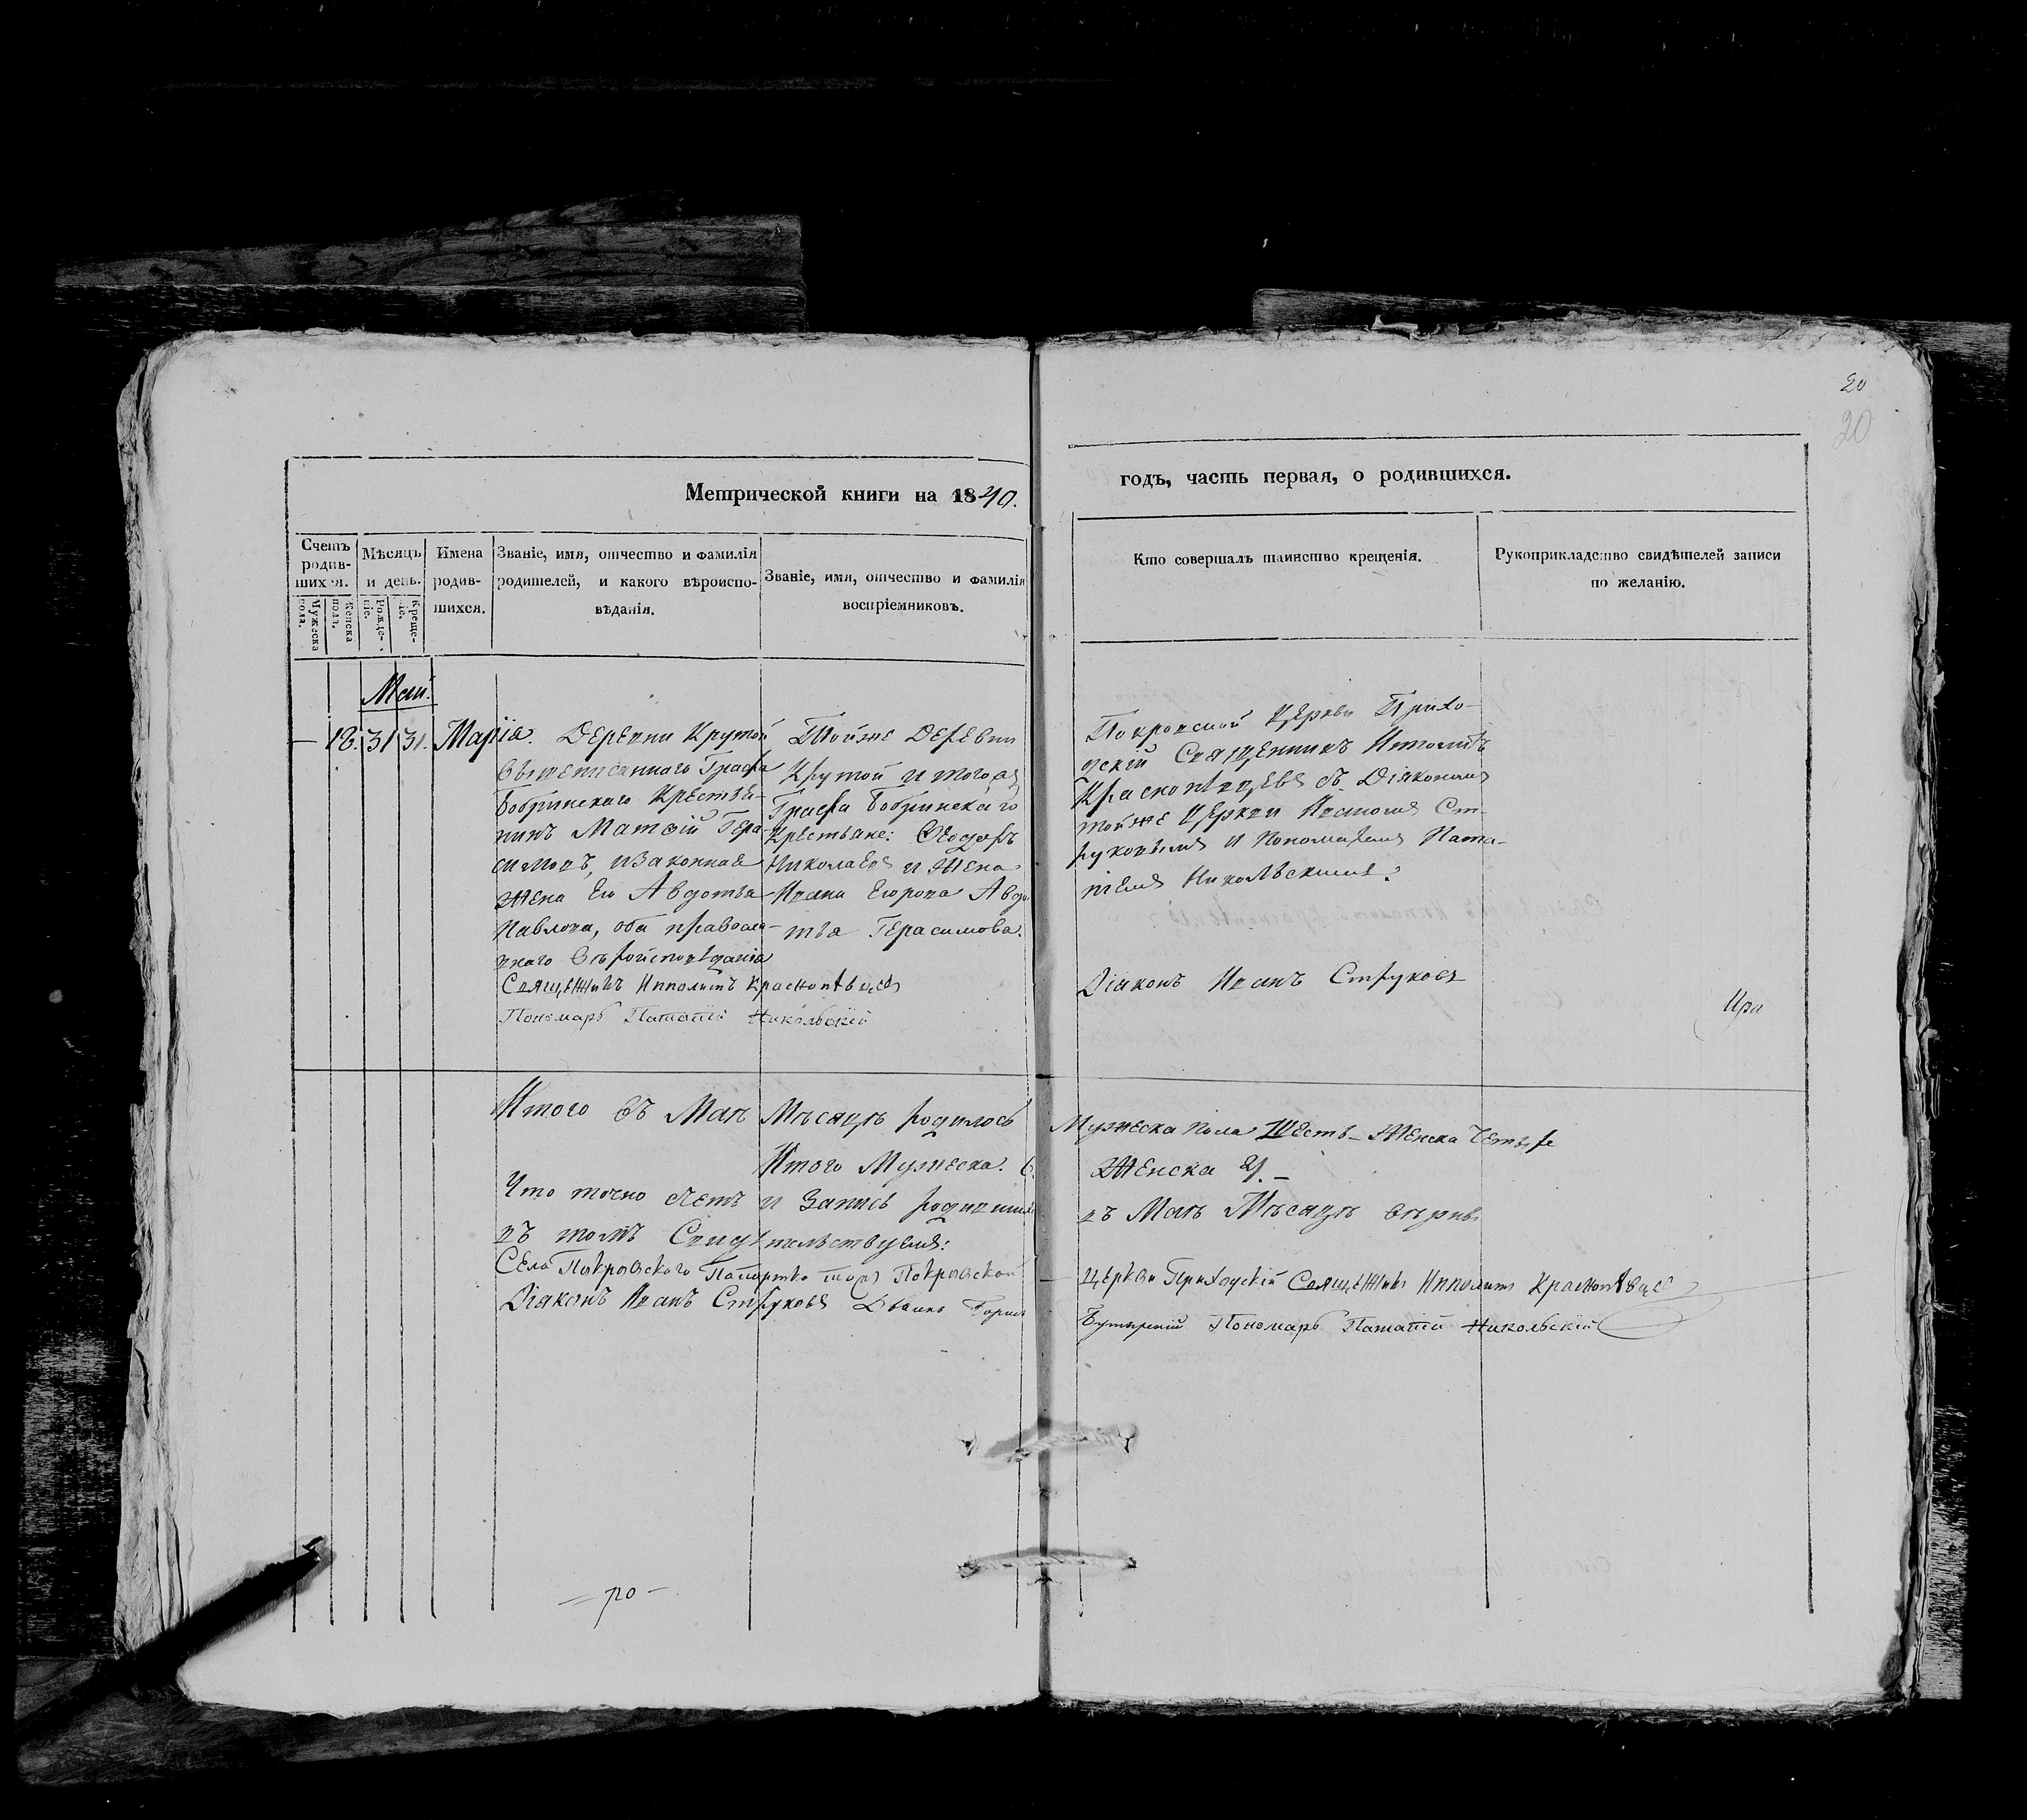 20
20
Метрической книги на 1840.
годъ, часть первая, о родившихся.
Счетъ родив-шихся.
Мужеска пола.
Женска пола.
Мѣсяцъ и день.
Рожде-ніе.
Креще-ніе.
Имена родив-шихся.
Званіе, имя, отчество и фамилія
родителей, и какого вѣроиспо-
вѣданія.
Званіе, имя, отчество и фамилія
воспріемниковъ.
Кто совершалъ таинство крещенія.
Рукоприкладство свидѣтелей записи
по желанію.
Маій
— 18. 31 31. Марія.
Деревни Крутой
вышеписаннаго Графа
Бобринскаго Крестья-
нинъ Матѳій Гера-
симовъ, и законная
жена его Авдотья
Павлова, оба правосла-
внаго вѣроисповѣданія
Священникъ Ипполитъ Краснопѣвцевъ
Пономарь Никольскій
Тойже Деревни
Крутой и тогожъ
Графа Бобринскаго
Крестьяне: Ѳеодоръ
Николаевъ и жена
Ивана Егорова Авдо-
тья Герасимова.
Покровской Церкви Прихо-
дскій Священникъ Ипполитъ
Краснопѣвцевъ съ Діакономъ
тойже Церкви Иваномъ Ст-
руковымъ и Пономаремъ
Никольскимъ.
Діаконъ Иванъ Струковъ
Итого въ Маѣ Мѣсяцѣ родилось
Мужеска пола шесть — Женска четыре
Итого Мужеска. 6.
Женска 4. —
Что точно счетъ и запись родившимся
въ Маѣ Мѣсяцѣ вѣрны
въ томъ Свидѣтельствуемъ:
Села Покровского тожъ Покровской
Церкви Приходскій Священникъ Ипполитъ Краснопѣвцевъ
Діаконъ Иванъ Струковъ
Пономарь Никольскій